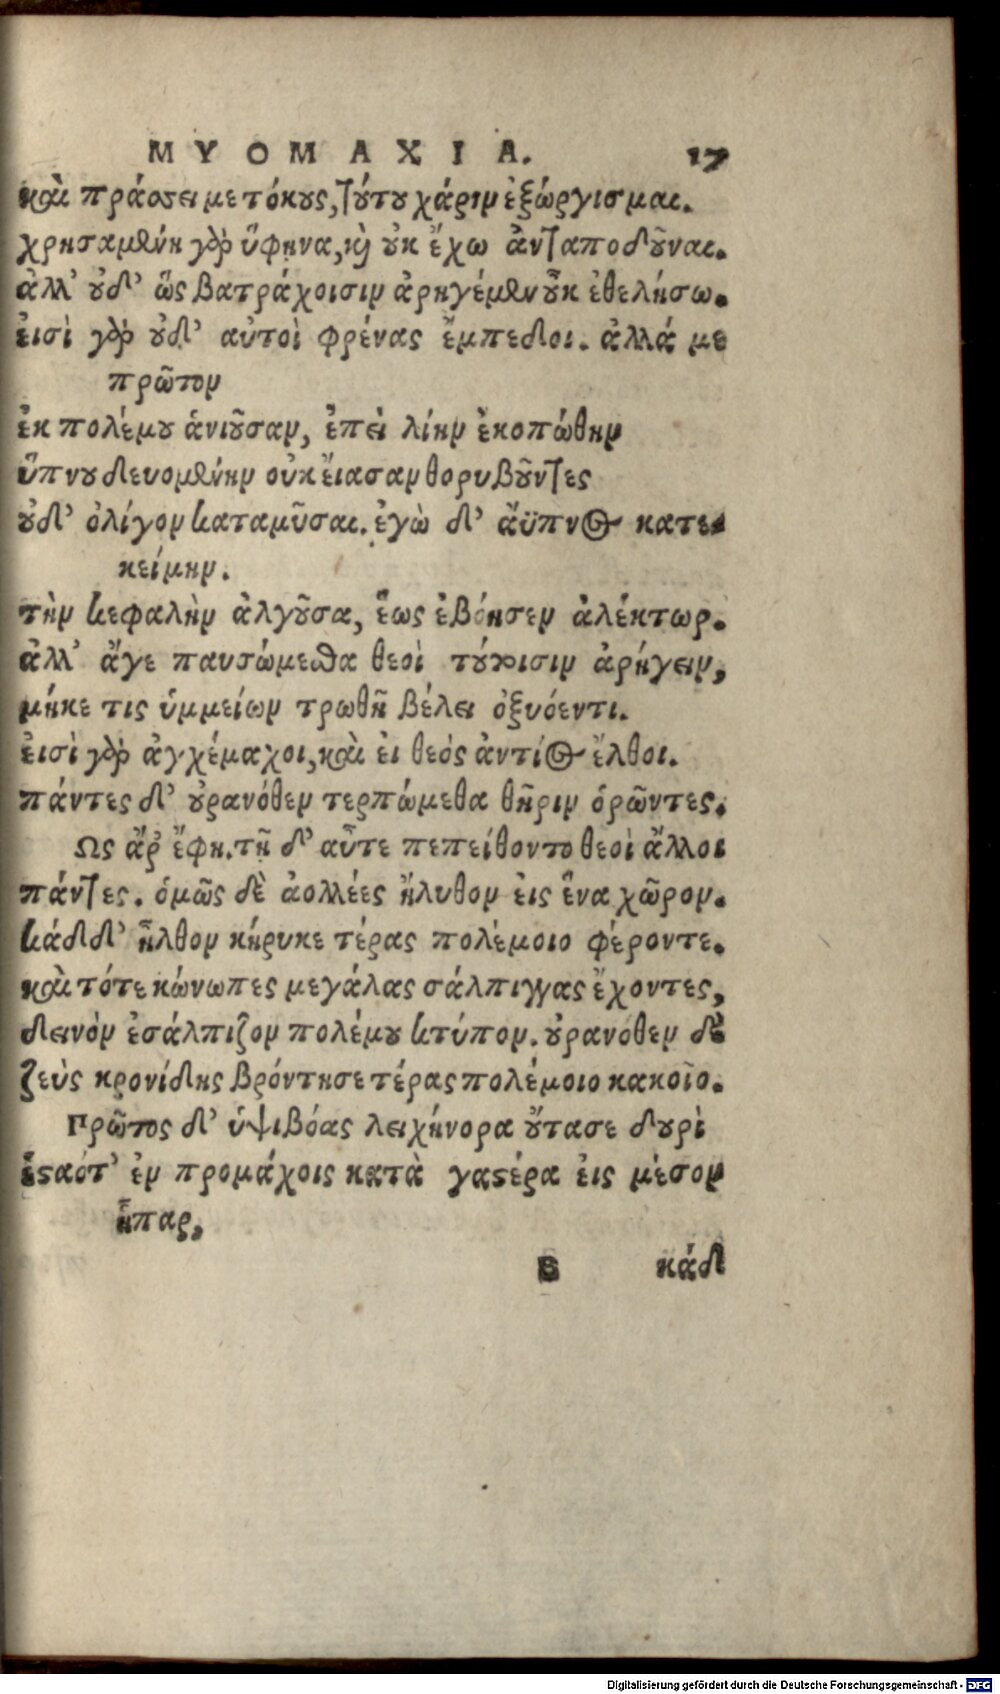 ΜΥΟΜΑΧΙΑ. 17
καὶ πράσσει με τόκους, τούτου χάριν ἐξώργισμαι.
χρησαμένη γὰρ ὕφηνα, καὶ οὐκ ἔχω ἀνταποδοῦναι.
ἀλλ' οὐδ' ὣς βατράχοισιν ἀρηγέμεν οὖκ ἐθελήσω.
ἐισὶ γὰρ οὐδ' αὐτοὶ φρένας ἔμπεδοι. ἀλλά με
πρῶτον
ἐκ πολέμου ἀνιοῦσαν, ἐπεὶ λίην ἐκοπώθην
ὕπνου δευομένην οὐκ ἔιασαν θορυβοῦντες
οὐδ' ὀλίγον καταμῦσαι. ἐγὼ δ' ἄϋπνος κατε-
κείμην.
τὴν κεφαλὴν ἀλγοῦσα, ἕως ἐβόησεν ἀλέκτωρ.
ἀλλ' ἄγε παυσώμεσθα θεοὶ τούτοισιν ἀρήγειν,
μήκε τις ὑμμείων τρωθῇ βέλει ὀξυόεντι.
ἐισὶ γὰρ ἀγχέμαχοι, καὶ ἐι θεός ἀντίος ἔλθοι.
πάντες δ' οὐρανόθεν τερπώμεθα θῆριν ὁρῶντες.
Ως ἄρ ἔφη. τῇ δ' αὖτε πεπείθοντο θεοὶ ἄλλοι
πάντες. ὁμῶς δὲ ἀολλέες ἤλυθον ἐις ἕνα χῶρον.
κάδδ' ἦλθον κήρυκε τέρας πολέμοιο φέροντε.
καὶ τότε κώνωπες μεγάλας σάλπιγγας ἔχοντες,
δεινὸν ἐσάλπιζον πολέμου κτύπον. οὐρανόθεν δὲ
ζεὺς κρονίδης βρόντησε τέρας πολέμοιο κακοῖο.
Πρῶτος δ' ὑψιβόας λειχήνορα οὔτασε δουρὶ
ἑσταότ' ἐν προμάχοις κατὰ γαστέρα ἐις μέσον
ἧπαρ,
B κάδ
Digitalisierung gefördert durch die Deutsche Forschungsgemeinschaft - DFG